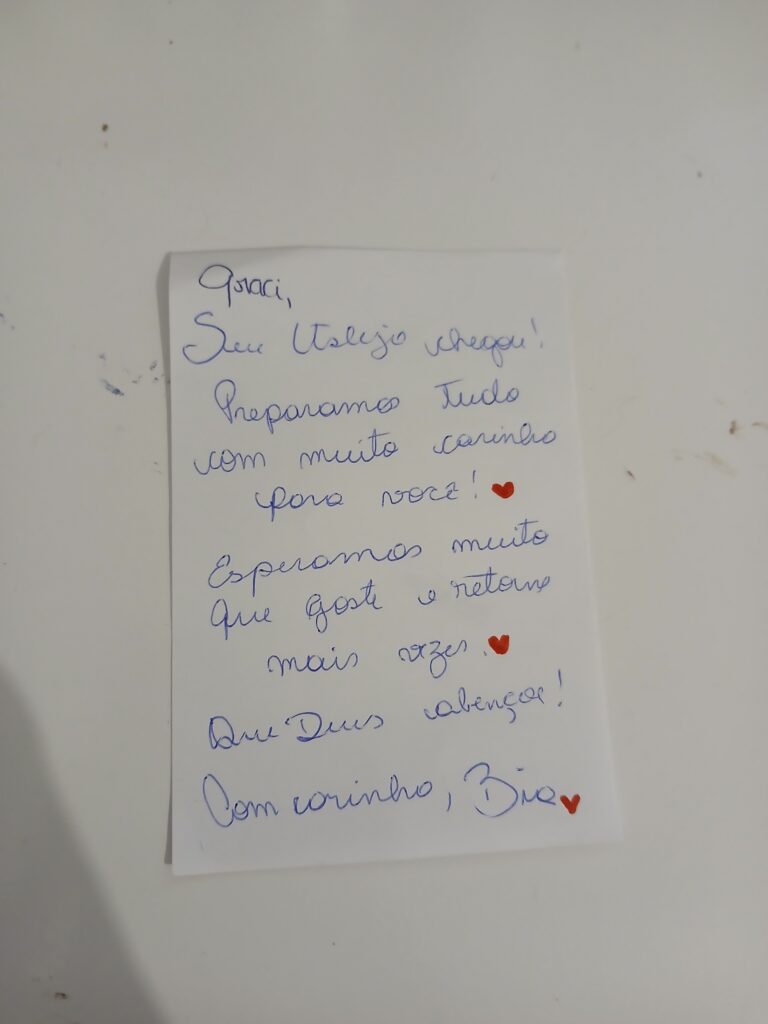 Graci,
Seu Uslejo chegou!
Preparamos tudo
com muito carinho
para você! ♥
Esperamos muito
que goste e retorne
mais vezes. ♥
Que Deus abençoe!
Com carinho, Bia ♥